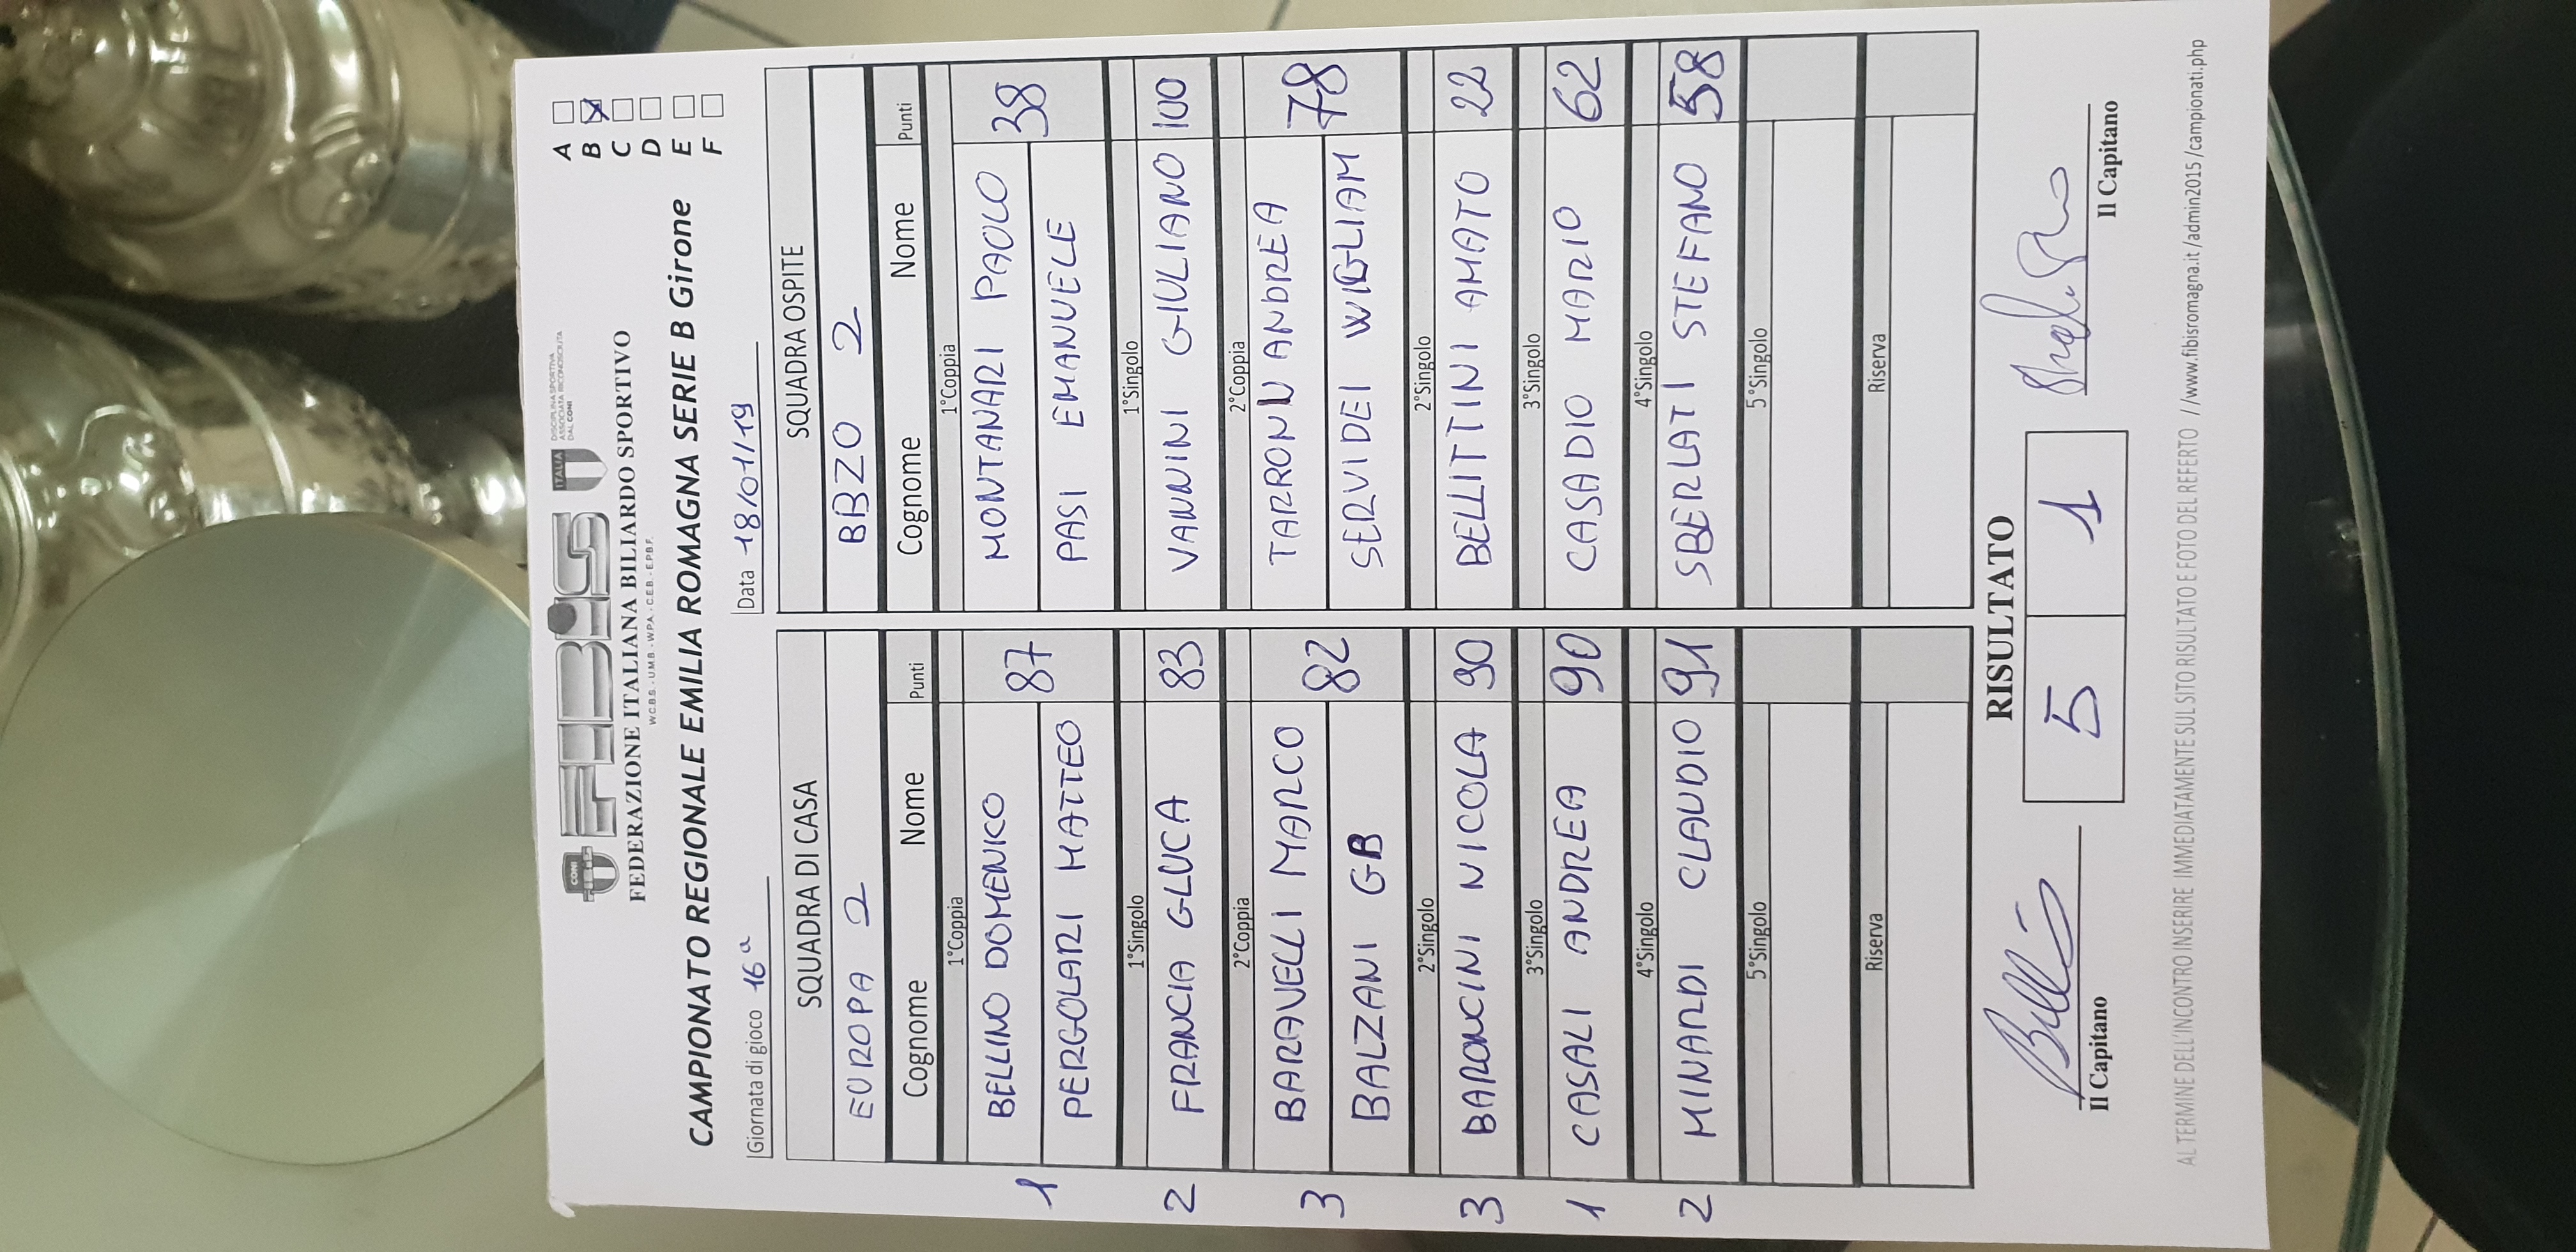 CONI FIBIS ITALIA DISCIPLINA SPORTIVA ASSOCIATA RICONOSCIUTA DAL CONI
FEDERAZIONE ITALIANA BILIARDO SPORTIVO
W.C.B.S. - U.M.B. - W.P.A. - C.E.B. - E.P.B.F.
CAMPIONATO REGIONALE EMILIA ROMAGNA SERIE B Girone
A
B
C
D
E
F
Giornata di gioco 16ª Data 18/01/19
SQUADRA DI CASA SQUADRA OSPITE
EUROPA 2 BBZO 2
Cognome Nome Punti Cognome Nome Punti
1°Coppia 1°Coppia
1 BELLINO DOMENICO 87 MONTANARI PAOLO 38
PERGOLARI MATTEO PASI EMANUELE
1°Singolo 1°Singolo
2 FRANCIA GLUCA 83 VANNINI GIULIANO 100
2°Coppia 2°Coppia
3 BARAVELLI MARCO 82 TARRONI ANDREA 78
BALZANI GB SERVIDEI WIGLIAM
2°Singolo 2°Singolo
3 BARONCINI NICOLA 90 BELLITTINI AMATO 22
3°Singolo 3°Singolo
1 CASALI ANDREA 90 CASADIO MARIO 62
4°Singolo 4°Singolo
2 MINARDI CLAUDIO 91 SBERLATI STEFANO 58
5°Singolo 5°Singolo
Riserva Riserva
RISULTATO
5 1
Il Capitano Il Capitano
AL TERMINE DELL'INCONTRO INSERIRE IMMEDIATAMENTE SUL SITO RISULTATO E FOTO DEL REFERTO //www.fibisromagna.it /admin2015 /campionati.php